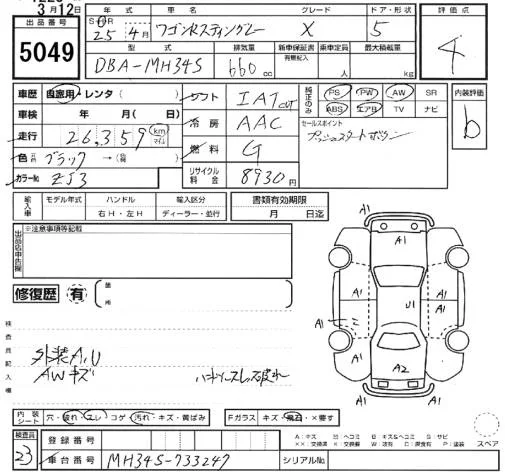 3月12日
出品番号
5049
年式 車名 グレード ドア・形状
S・H・R 25年 4月 ワゴンRスティングレー X 5
型式 排気量 新車保証書 乗車定員 最大積載量
有無記入
DBA-MH34S 660cc 人 kg
評価点
4
車歴 自家用・レンタ( )
車検 年 月( 日)
走行 26,359 km マイル
色 ブラック →( )
カラーNo. ZJ3
シフト IAT
冷房 AAC
燃料 G
リサイクル料金 8930円
純正のみ PS PW AW SR
ABS エアB TV ナビ
セールスポイント
プッシュスタートボタン
内装評価
b
輸入車 モデル年式 ハンドル 輸入区分
右H・左H ディーラー・並行
書類有効期限
月 日迄
出品店申告欄
※注意事項等記載
修復歴 有 箇所
検査員記入欄
外装A,U
AWキズ
A1
A1
A1
A1
A1
U1
A1
A1
A2
A1
内装シート 穴・破れ・スレ・コゲ・汚れ・キズ・黄ばみ
Fガラス キズ・飛石・×要す
A:キズ U:ヘコミ B:キズ&ヘコミ S:サビ
××:交換済 X:交換要 W:波有 C:腐食有 P:塗装
スペア
検査員
23
登録番号
車台番号 MH34S-733247
シリアルNo.